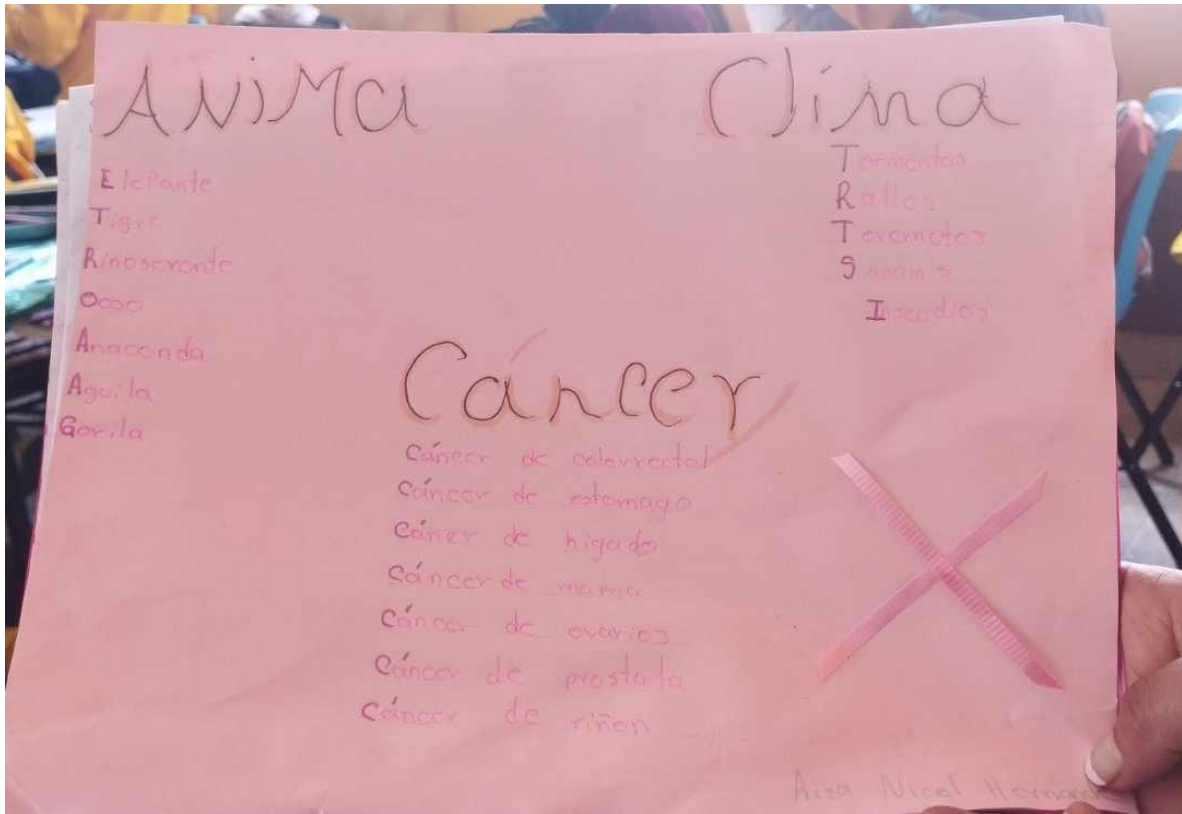 ANiMa
Elefante
Tigre
Rinoseronte
Ooso
Anaconda
Aguila
Gorila
Clima
Tormentas
Rallos
Teremotos
Sonamis
Inscudios
Cáncer
Cáncer de colorrectal
Cáncer de estomago
Cáner de higado
Cáncer de mama
Cáncer de ovarios
Cáncer de prostata
Cáncer de riñon
Nicol